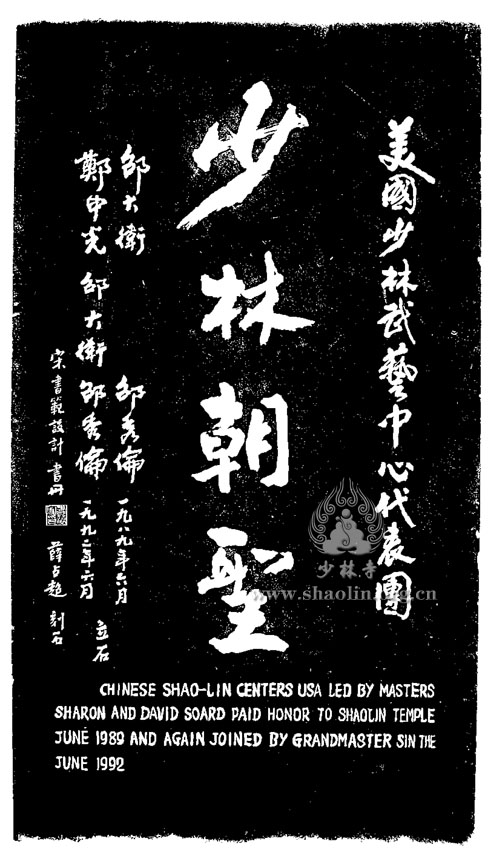 美國少林武藝中心代表團
少林朝聖
邵大衛 邵秀倫 一九八九年六月
鄭申光 邵大衛 邵秀倫 一九九二年六月 立石
宋書範設計 書丹 薛占超 刻石
少林寺
CHINESE SHAO-LIN CENTERS USA LED BY MASTERS
SHARON AND DAVID SOARD PAID HONOR TO SHAOLIN TEMPLE
JUNE 1989 AND AGAIN JOINED BY GRANDMASTER SIN THE
JUNE 1992